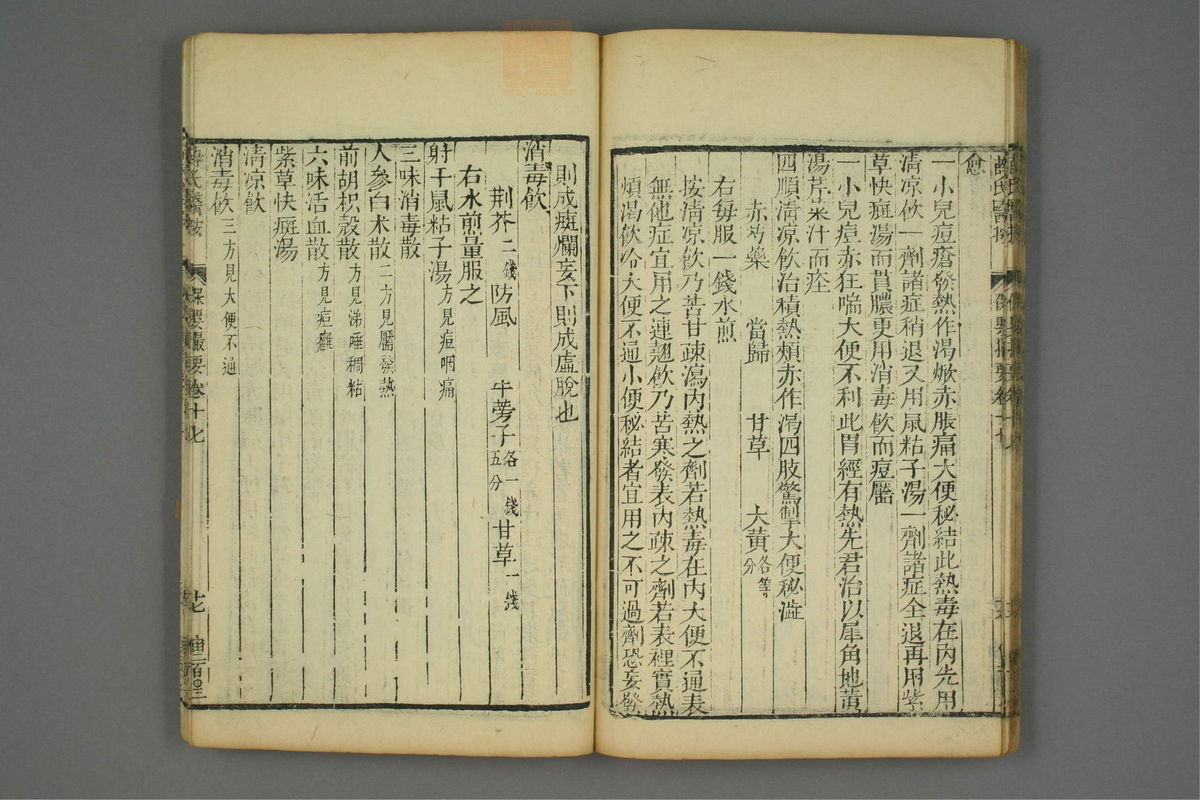 愈
一小兒痘瘡發熱作渴㾕赤脹痛大便秘結此熱毒在內先用
清凉飲一劑諸症稍退又用鼠粘子湯一劑諸症全退再用紫
草快癍湯而貫膿更用消毒飲而痘靨
一小兒痘赤狂喘大便不利此胃經有熱先君治以犀角地黃
湯芹菜汁而痊
四順清凉飲治積熱頰赤作渴四肢驚掣大便秘澁
赤芍藥 當歸 甘草 大黃各等分
右每服一錢水煎
按清凉飲乃苦甘疎瀉內熱之劑若熱毒在內大便不通表
無他症宜用之連翹飲乃苦寒發表內疎之劑若表裡實熱
煩渴飲冷大便不通小便秘結者宜用之不可過劑恐妄發
則成癍爛妄下則成虛脫也
消毒飲
荆芥二錢 防風 牛蒡子各一錢五分 甘草一錢
右水煎量服之
射干鼠粘子湯方見痘咽痛
三味消毒散
人參白术散二方見靨發熱
前胡枳殼散方見涕唾稠粘
六味活血散方見痘癰
紫草快癍湯
清凉飲
消毒飲三方見大便不通
薛氏醫按 保嬰撮要卷十七 十七